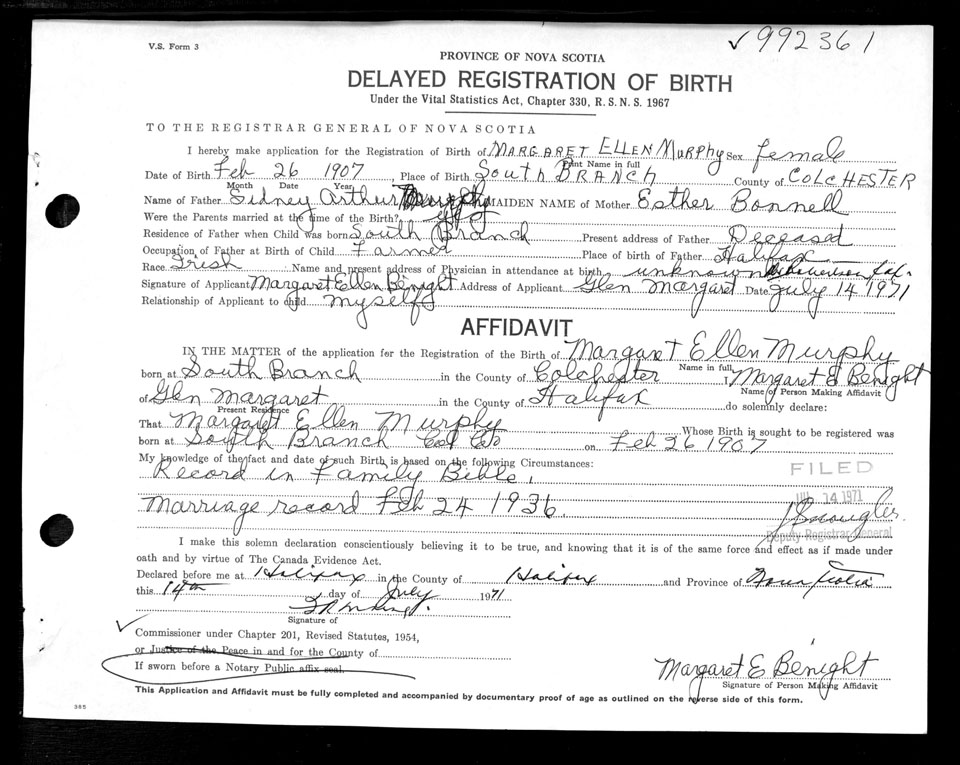 V.S. Form 3
✓992361
PROVINCE OF NOVA SCOTIA
DELAYED REGISTRATION OF BIRTH
Under the Vital Statistics Act, Chapter 330, R.S.N.S. 1967
TO THE REGISTRAR GENERAL OF NOVA SCOTIA
I hereby make application for the Registration of Birth of MARGARET ELLEN MURPHY Sex female
Print Name in full
Date of Birth Feb 26 1907, Place of Birth South BRANCH County of COLCHESTER
Month Date Year
Name of Father Sidney Arthur Murphy MAIDEN NAME of Mother Esther Bonnell
Were the Parents married at the time of the Birth? yes
Residence of Father when Child was born South Branch Present address of Father Deceased
Occupation of Father at Birth of Child Farmed Place of birth of Father Halifax
Race Irish Name and present address of Physician in attendance at birth unknown
Signature of Applicant Margaret Ellen Benight Address of Applicant Glen Margaret Date July 14 1971
Relationship of Applicant to child myself
AFFIDAVIT
IN THE MATTER of the application for the Registration of the Birth of Margaret Ellen Murphy
Name in full
born at South Branch in the County of Colchester I Margaret E Benight
Name of Person Making Affidavit
of Glen Margaret in the County of Halifax do solemnly declare:
Present Residence
That Margaret Ellen Murphy Whose Birth is sought to be registered was
born at South Branch Col Co on Feb 26 1907
My knowledge of the fact and date of such Birth is based on the following Circumstances:
Record in Family Bible,
FILED
Marriage record Feb 24 1936.
JUL 14 1971
Deputy Registrar General
I make this solemn declaration conscientiously believing it to be true, and knowing that it is of the same force and effect as if made under
oath and by virtue of The Canada Evidence Act.
Declared before me at Halifax in the County of Halifax and Province of Nova Scotia
this 14th day of July 1971
Signature of
✓
Commissioner under Chapter 201, Revised Statutes, 1954,
or Justice of the Peace in and for the County of
If sworn before a Notary Public affix seal.
Margaret E Benight
Signature of Person Making Affidavit
This Application and Affidavit must be fully completed and accompanied by documentary proof of age as outlined on the reverse side of this form.
385